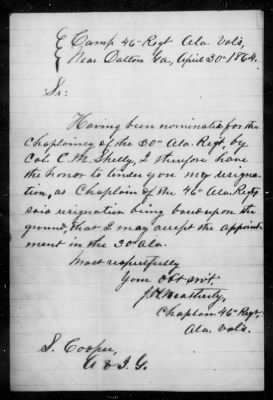 Camp 46th Regt Ala. Vols,
Near Dalton Ga, April 30th 1864.
Sr:
Having been nominated for the
chaplaincy of the 30th Ala. Regt, by
Col C. M. Shelly, I therefore have
the honor to tender you my resigna-
tion, as Chaplain of the 46th Ala. Regt,
said resignation being based upon the
ground, that I may accept the appoint-
ment in the 30th Ala.
Most respectfully
Your obt svt.
Weatherly,
Chaplain 46th Regt.
Ala. Vols.
S. Cooper,
A & I. G.